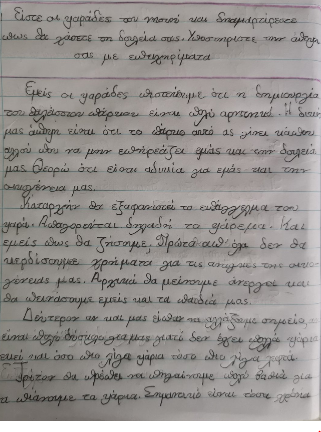 Είστε οι ψαράδες του νησιού και διαμαρτύρεστε
πως θα χάσετε τη δουλειά σας. Υποστηρίξτε την άποψη
σας με επιχειρήματα
Εμείς οι ψαράδες πιστεύουμε ότι η δημιουργία
του θαλάσσιου πάρκου είναι πολύ αρνητικό. Η
μας άποψη είναι ότι το πάρκο αυτό ας γίνει κάπου
αλλού που να μην επηρεάζει εμάς και την δουλειά
μας. Θεωρώ ότι είναι αδικία για εμάς και την
οικογένεια μας.
Καταρχήν θα εξαφανιστεί το επάγγελμα του
ψαρά. Απαγορεύεται δηλαδή το ψάρεμα. Και
εμείς πως θα ζήσουμε; Πρώτα απ' όλα δεν θα
κερδίσουμε χρήματα για τις ανάγκες της οικο
γένειας μας. Αρχικά θα μείνουμε άνεργοι και
θα πεινάσουμε εμείς και τα παιδιά μας.
Δεύτερον αν και μας είπαν να αλλάξουμε σημείο,
είναι πολύ δύσκολο για μας γιατί δεν έχει πολλά ψάρια
εκεί και όσο πιο λίγα ψάρια τόσο πιο λίγα λεφτά.
Τρίτον θα πρέπει να πηγαίνουμε πολύ βαθιά για
να πιάνουμε τα ψάρια. Σημαντικό είναι τόσα χρόνια